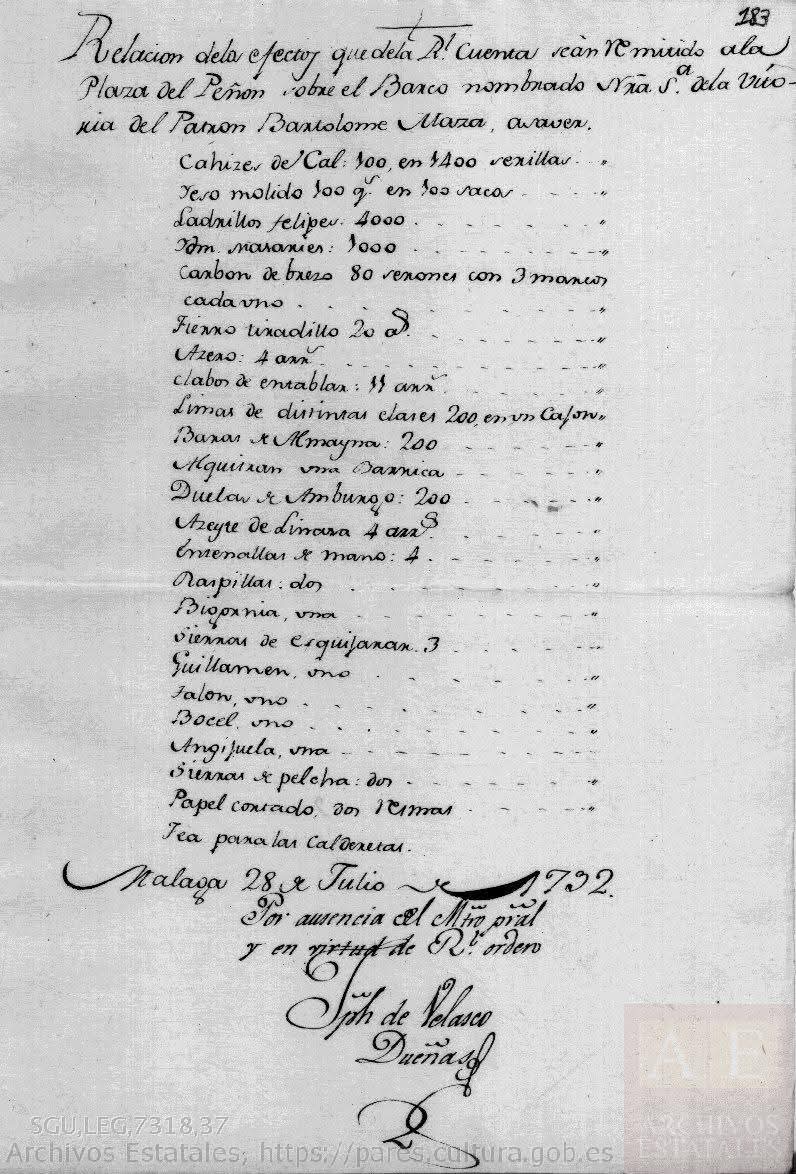 183
Relacion dela efectos que dela Rl. Cuenta se àn Remitido ala
Plaza del Peñon sobre el Barco nombrado Nrã Sa. dela Vito-
ria del Patron Bartolome Maza, asaver.
Cahizes de Cal: 100, en 1400 serillas. "
Yeso molido 100 qs. en 100 sacos "
Ladrillos felipes: 4000 "
Ydm. mazaries: 1000 "
Carbon de brezo 80 serones con 3 mancos
cada uno "
Fierro tiradillo 20 as. "
Azero: 4 arrs. "
Clabos de entablar: 11 arrs. "
Limas de distintas clases 200, en un Cajon "
Baras de Almayna: 200 "
Alquitran una Barrica "
Duelas de Amburgo: 200 "
Azeyte de Linaza 4 arrs. "
Entenallas de mano: 4 "
Raspillas: dos "
Bigornia, una "
Sierras de esquijarar. 3 "
Guillamen, uno "
Jalon, uno "
Bocel, uno "
Angijuela, una "
Sierras de pelcha: dos "
Papel cortado, dos Resmas "
Tea para las Calderetas.
Malaga 28 de Julio de 1732.
Por ausencia del Mtro. pral
y en virtud de Rl. orden
Jph de Velasco
Dueñas
SGU,LEG,7318,37
Archivos Estatales; https://pares.cultura.gob.es
AE
ARCHIVOS
ESTATALES